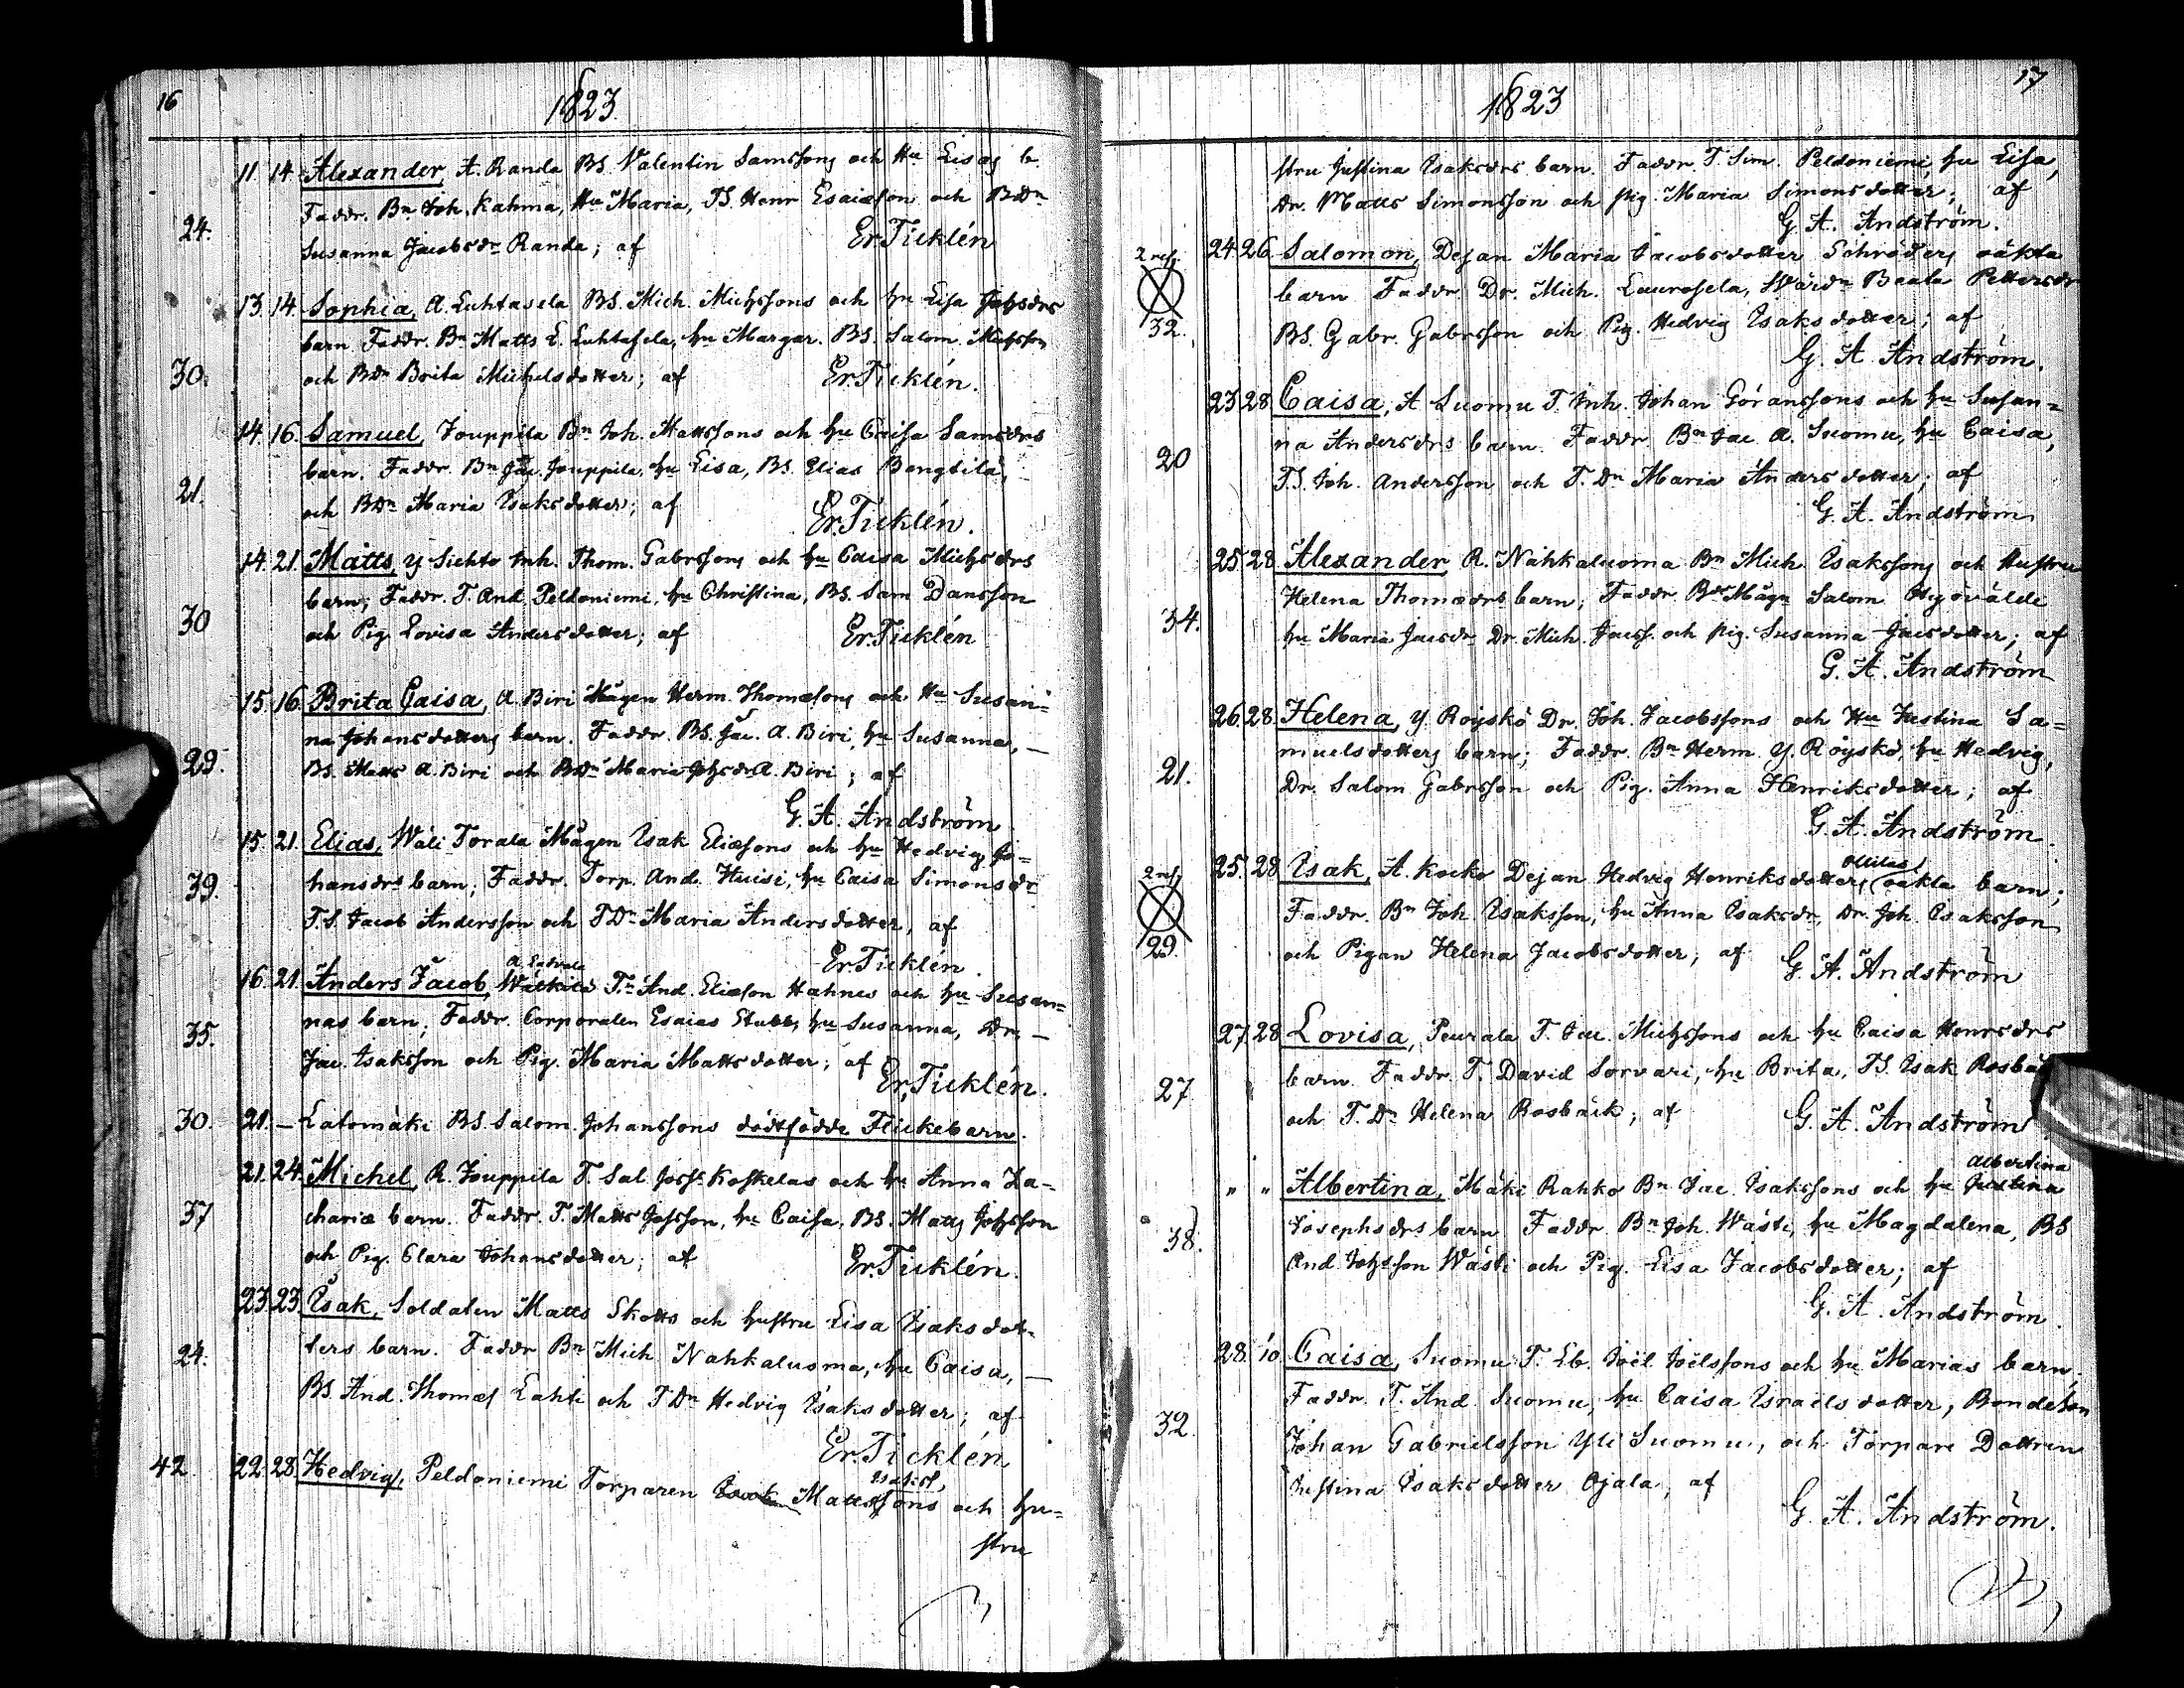 16
1823.
11. 14. Alexander, A. Randa BS. Valentin Samssons och Hu Lisas b.
Faddr. Bn Joh. Kahma, Hu Maria, TS. Henr Esaiæson och BDn
24. Susanna Jacobsdr Randa; af Er. Ticklén
13. 14. Sophia, A. Luhtasela BS. Mich. Michssons och hu Lisa Johsdrs
barn. Faddr. Bn Matts L. Luhtasela, hu Margar. BS. Salom. Michsson
30. och BDn Brita Michelsdotter; af Er. Ticklén.
14. 16. Samuel, Jouppila Bn Joh. Mattssons och hu Caisa Samsdrs
barn. Faddr. Bn Jac. Jouppila, hu Lisa, BS. Elias Bengtilä,
21. och BDn Maria Isaksdotter; af Er. Ticklén.
14. 21. Matts, Y Sichto Inh. Thom. Gabrssons och hu Caisa Michsdrs
barn; Faddr. T. And. Peldoniemi, hu Christina, BS. Sam Dansson
30 och Pig. Lovisa Andersdotter; af Er. Ticklén
15. 16. Brita Caisa, A. Biri Mågen Herm. Thomæsons och Hu Susan=
na Johansdotters barn. Faddr. BS. Jac. A. Biri, hu Susanna, —
29. BS. Matts A. Biri och BDn Maria Johsdr A. Biri; af
G. A. Andström
15. 21. Elias, Wäli Torala Mågen Isak Eliæsons och hu Hedvig Jo=
39. hansdrs barn; Faddr. Torp. And. Huisi, hu Caisa Simonsdr
T.S. Jacob Andersson och TDn Maria Andersdotter, af
Er. Ticklén.
A. Ladvala
16. 21. Anders Jacob, Wälkilä Tn And. Eliæson Hahnes och hu Susan=
35. nas barn; Faddr. Corporalen Esaias Stubb, hu Susanna, Dr. —
Jac. Isaksson och Pig. Maria Mattsdotter; af
Er. Ticklén.
30. 21. — Latomäki BS. Salom. Johanssons dödfödde Flickebarn.
21. 24. Michel, R. Jouppila T. Sal Joss. Koskelas och hu Anna Za=
37 chariæ barn. Faddr. T. Matts Josson, hu Caisa, BS. Matts Johsson
och Pig. Clara Johansdotter; af Er. Ticklén.
23. 23. Isak, Soldaten Matts Skotts och hustru Lisa Isaksdot=
24. ters barn. Faddr Bn Mich Nahkaluoma, hu Caisa, —
BS. And. Thomæs Lahti och TDn Hedvig Isaksdotter; af
Er. Ticklén
Isakss.
42. 22. 28. Hedvig, Peldoniemi Torparen Isak Mattssons och hu=
stru
17
1823
stru Justina Isaksdrs barn. Faddr. T. Sim. Peldoniemi, hu Lisa,
Dr. Matts Simonsson och pig. Maria Simonsdotter; af
G. A. Andström.
2 refs. 24. 26. Salomon, Dejan Maria Jacobsdotter Schröders oäkta
barn. Faddr. Dr. Mich. Laurosela, Wärdn Beata Pettersdr
32. BS. Gabr. Gabrsson och Pig. Hedvig Isaksdotter; af
G. A Andström.
23. 28. Caisa, A Suomu T. Inh. Johan Göranssons och hu Susan=
20 na Andersdrs barn. Faddr. Bn Jac A. Suomu, hu Caisa,
T.S. Joh. Andersson och T. Dn Maria Andersdotter; af
G. A. Andström
25. 28. Alexander R. Nahkaluoma Bn Mich Isakssons och Hustru
34. Helena Thomædrs barn; Faddr. Bde Mågn Salom Högövälde
hu Maria Jacsdr Dr. Mich. Jacss. och pig. Susanna Jacsdotter; af
G. A. Andström
26. 28. Helena, Y. Röyskö Dr. Joh. Jacobssons och Hu Justina Sa=
21. muelsdotters barn; Faddr. Bn Herm. Y. Röyskö, hu Hedvig,
Dr. Salom Gabrsson och Pig. Anna Henriksdotter; af
G. A. Andström.
2 ref. 25. 28. Isak, A. Kocko Dejan Hedvig Henriksdotters oäkta barn;
Faddr. Bn Joh. Isaksson, hu Anna Isaksdr, Dr. Joh. Isaksson
29. och Pigan Helena Jacobsdotter; af G. A. Andström
27. 28. Lovisa, Peurala T. Jac. Michssons och hu Caisa Henrsdrs
27 barn. Faddr. T. David Sorvari, hu Brita, TS. Isak Rosbäck
och T. Dn Helena Rosbäck; af G. A. Andström
Albertina
" " Albertina, Mäki Rahko Bn Jac. Isakssons och hu Justina
38. Josephsdrs barn Faddr. Bn Joh. Wästi, hu Magdalena, BS
And. Johsson Wästi och Pig. Lisa Jacobsdotter; af
G. A. Andström.
28. 10 Caisa, Suomu T. Lb. Joël Joëlssons och hu Marias barn,
32. Faddr. T. And. Suomu, hu Caisa Israëlsdotter, Bondeson
Johan Gabrielsson Yli Suomu, och Torpare Dottren
Justina Isaksdotter Ojala, af
G. A. Andström.